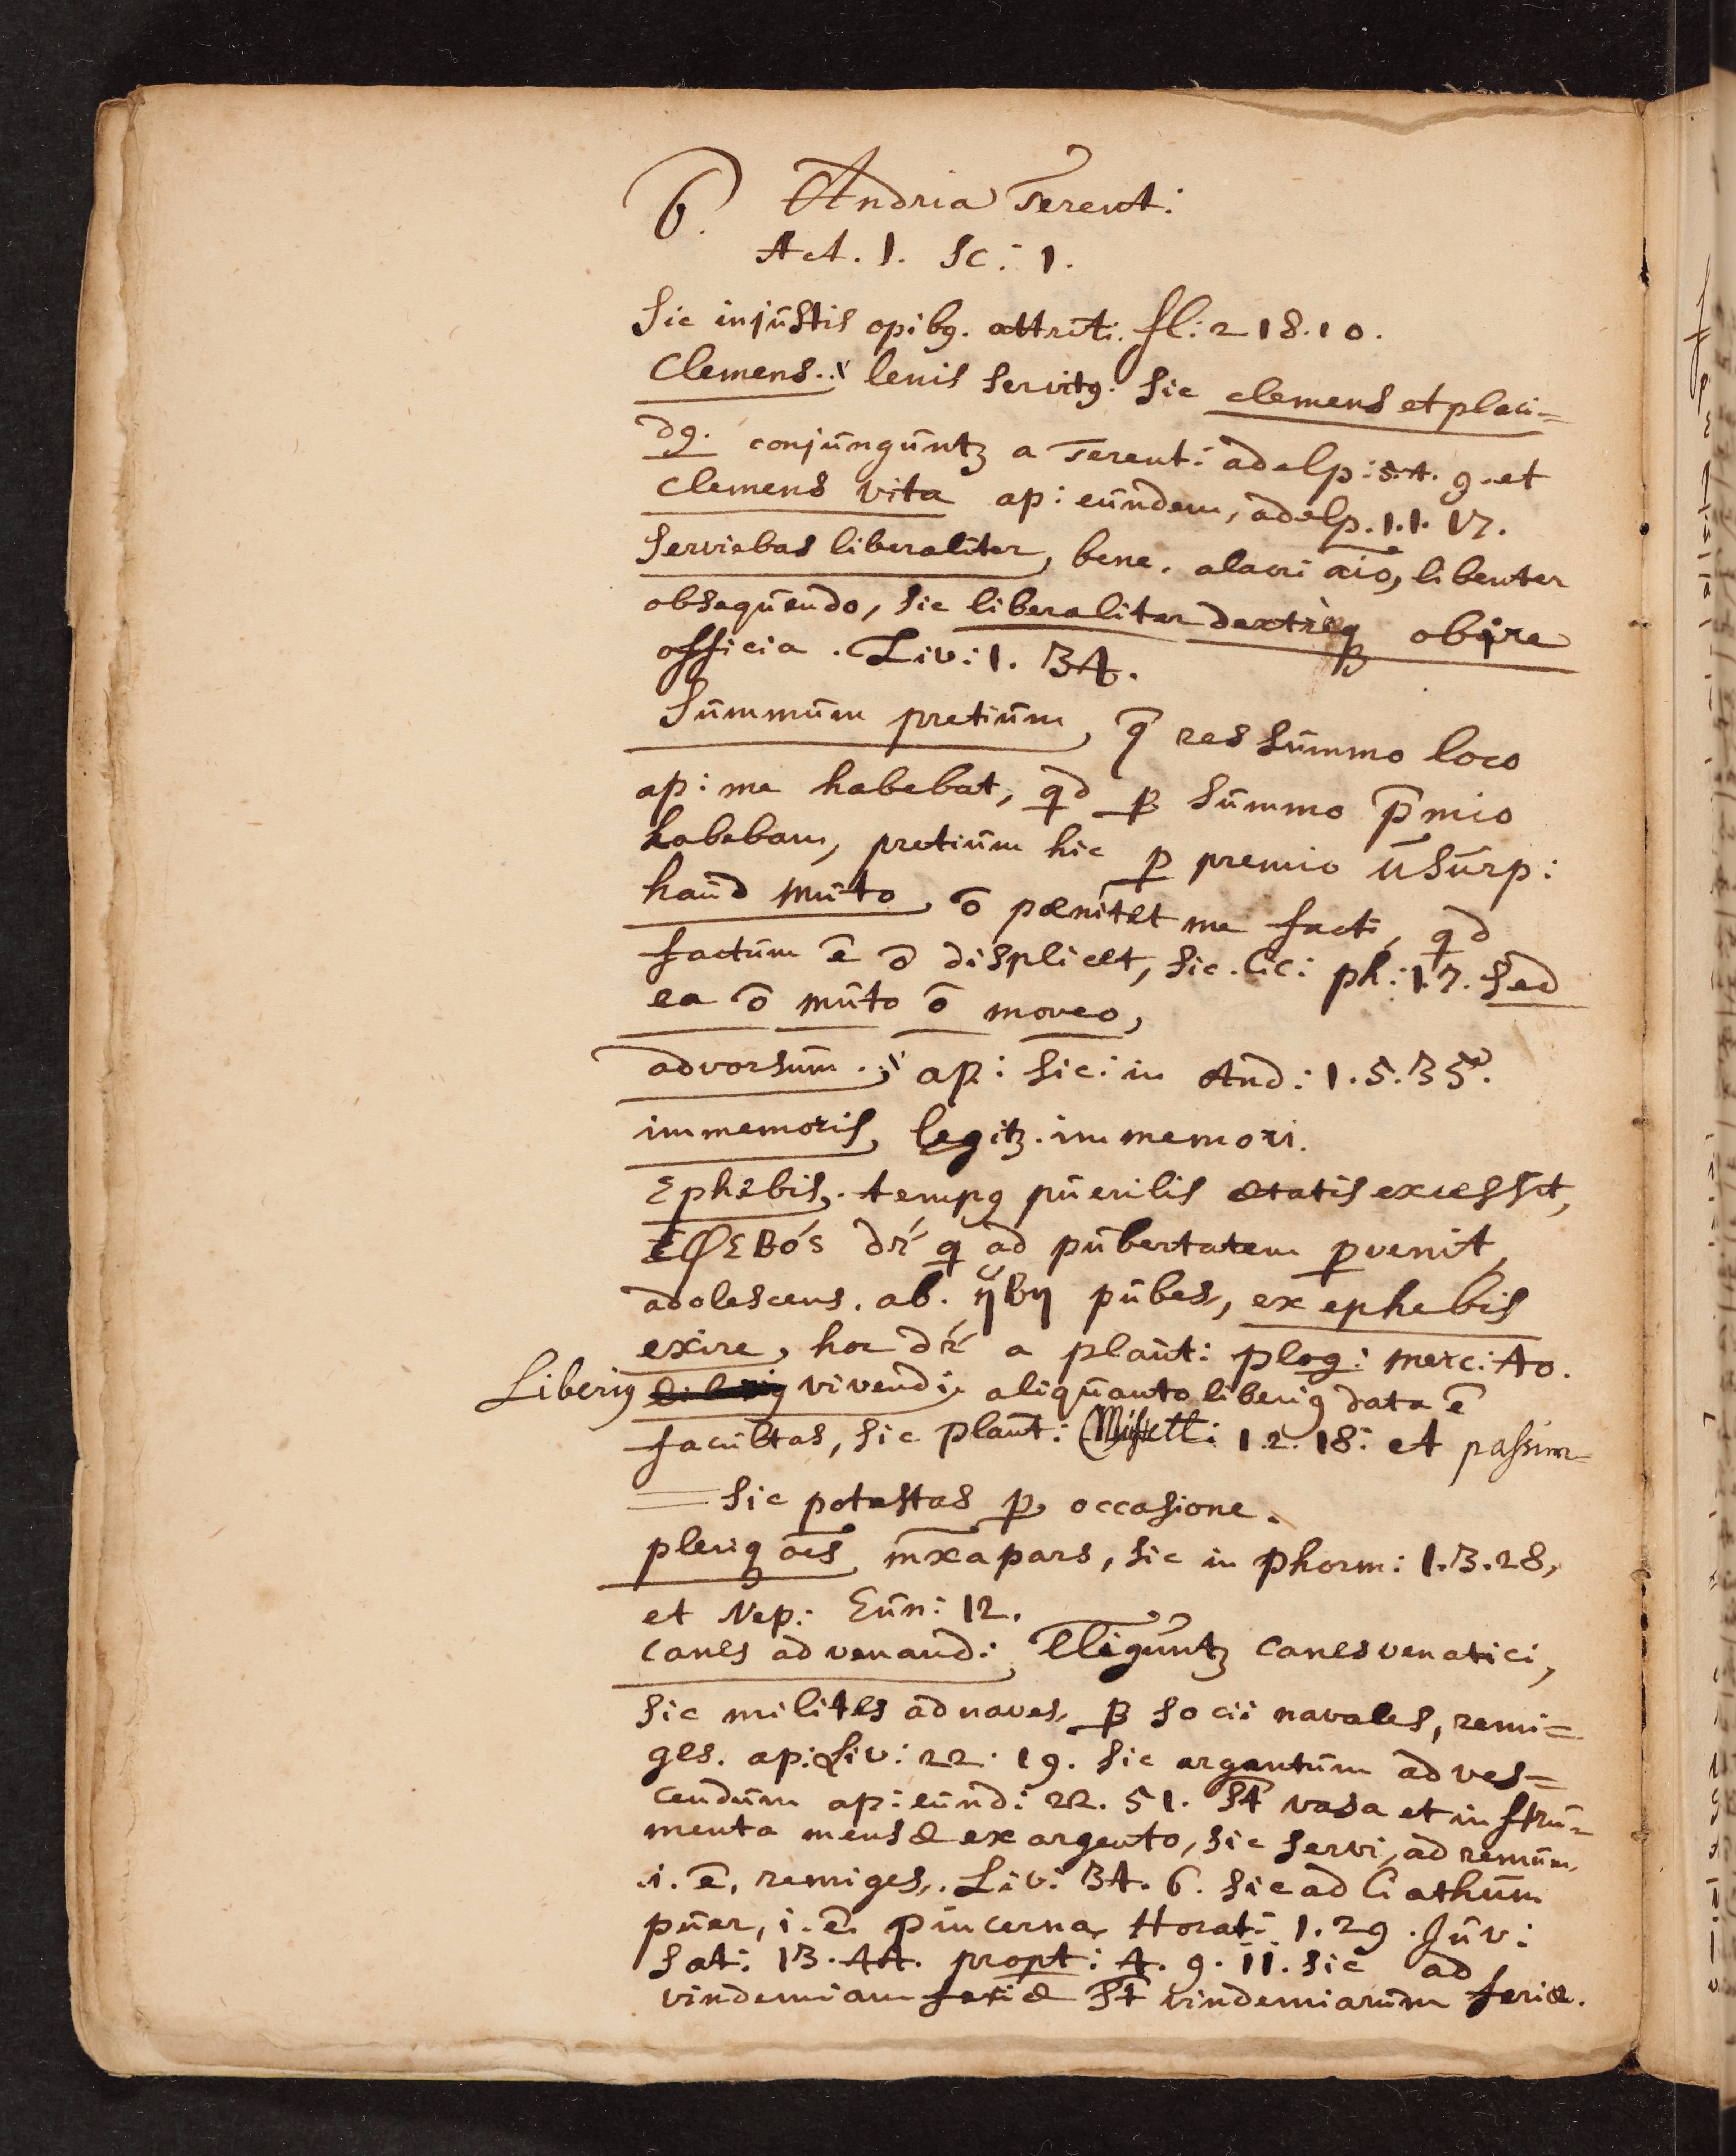 6. Andria Terent:
Act. 1. Sc: 1.
Sic injŭstis opibꝫ. attriti. fl: 2 18. 10.
Clemens.. lenis servitꝰ. Sic clemens et placi=
dꝰ. conjŭngŭntꝫ a Terent: adelp: 5. 4. 9. et
clemens vita ap: eŭndem, adelp. 1. 1. 17.
Serviebas liberaliter, bene. alacri aīo, libenter
obseqŭendo, sic liberaliter dextrèqꝫ obire
officia. Liv: 1. 34.
Sŭmmŭm pretiŭm, q̄ res sŭmmo loco
ap: me habebat, qd ꝓ sŭmmo p̄mio
habebam, pretiŭm hic ꝓ premio ŭsŭrp:
haŭd mŭto, ō pœnitet me facti, qd
factŭm ē ō displicet, sic. Cic: ph: 1. 7. Sed
ea ō mŭto ō moveo,
advorsŭm. ap: sic: in And: 1. 5. 35.
immemoris, legitꝫ. immemori.
Ephebis,. tempꝰ pŭerilis ætatis excessit,
ΕφΕΒós dr̄ q ad pŭbertatem ꝑvenit,
adolescens. ab. ἥβη pŭbes, ex ephebis
exire, hoc dr̄ a plaŭt: plog: merc: 40.
Liberiꝰ vivendi, aliqŭanto liberiꝰ data ē
facŭltas, sic plaŭt: 1. 2. 18: et passim=
sic potestas ꝓ occasione.
pleriqꝫ oēs, māxa pars, sic in Phorm: 1. 3. 28,
et Nep: Eŭn: 12.
canes ad venand:, Elligŭntꝫ canes venatici,
sic milites ad naves, ꝓ socii navales, remi=
ges. ap: Liv: 22. 19. sic argentŭm ad ves=
cendŭm ap: eŭnd: 22. 51. St̄ vasa et instrŭ=
menta mensæ ex argento, sic servi, ad remŭm,
i. ē. remiges,. Liv: 34. 6. sic ad Ciathŭm
pŭer, i. ē. pincerna, Horat: 1. 29. Jŭv:
Sat: 13. 44. propt: 4. 9. 11. sic ad
vindemiam feriæ St̄ vindemiarŭm feriæ.